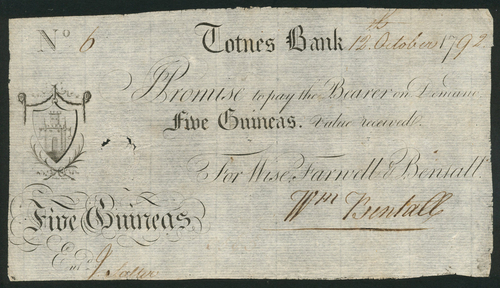 No 6 Totnes Bank 12th October 1792
I Promise to pay the Bearer on Demand
Five Guineas. Value received
For Wise, Farwell & Bentall
Wm Bentall
Five Guineas
Entd J Salter